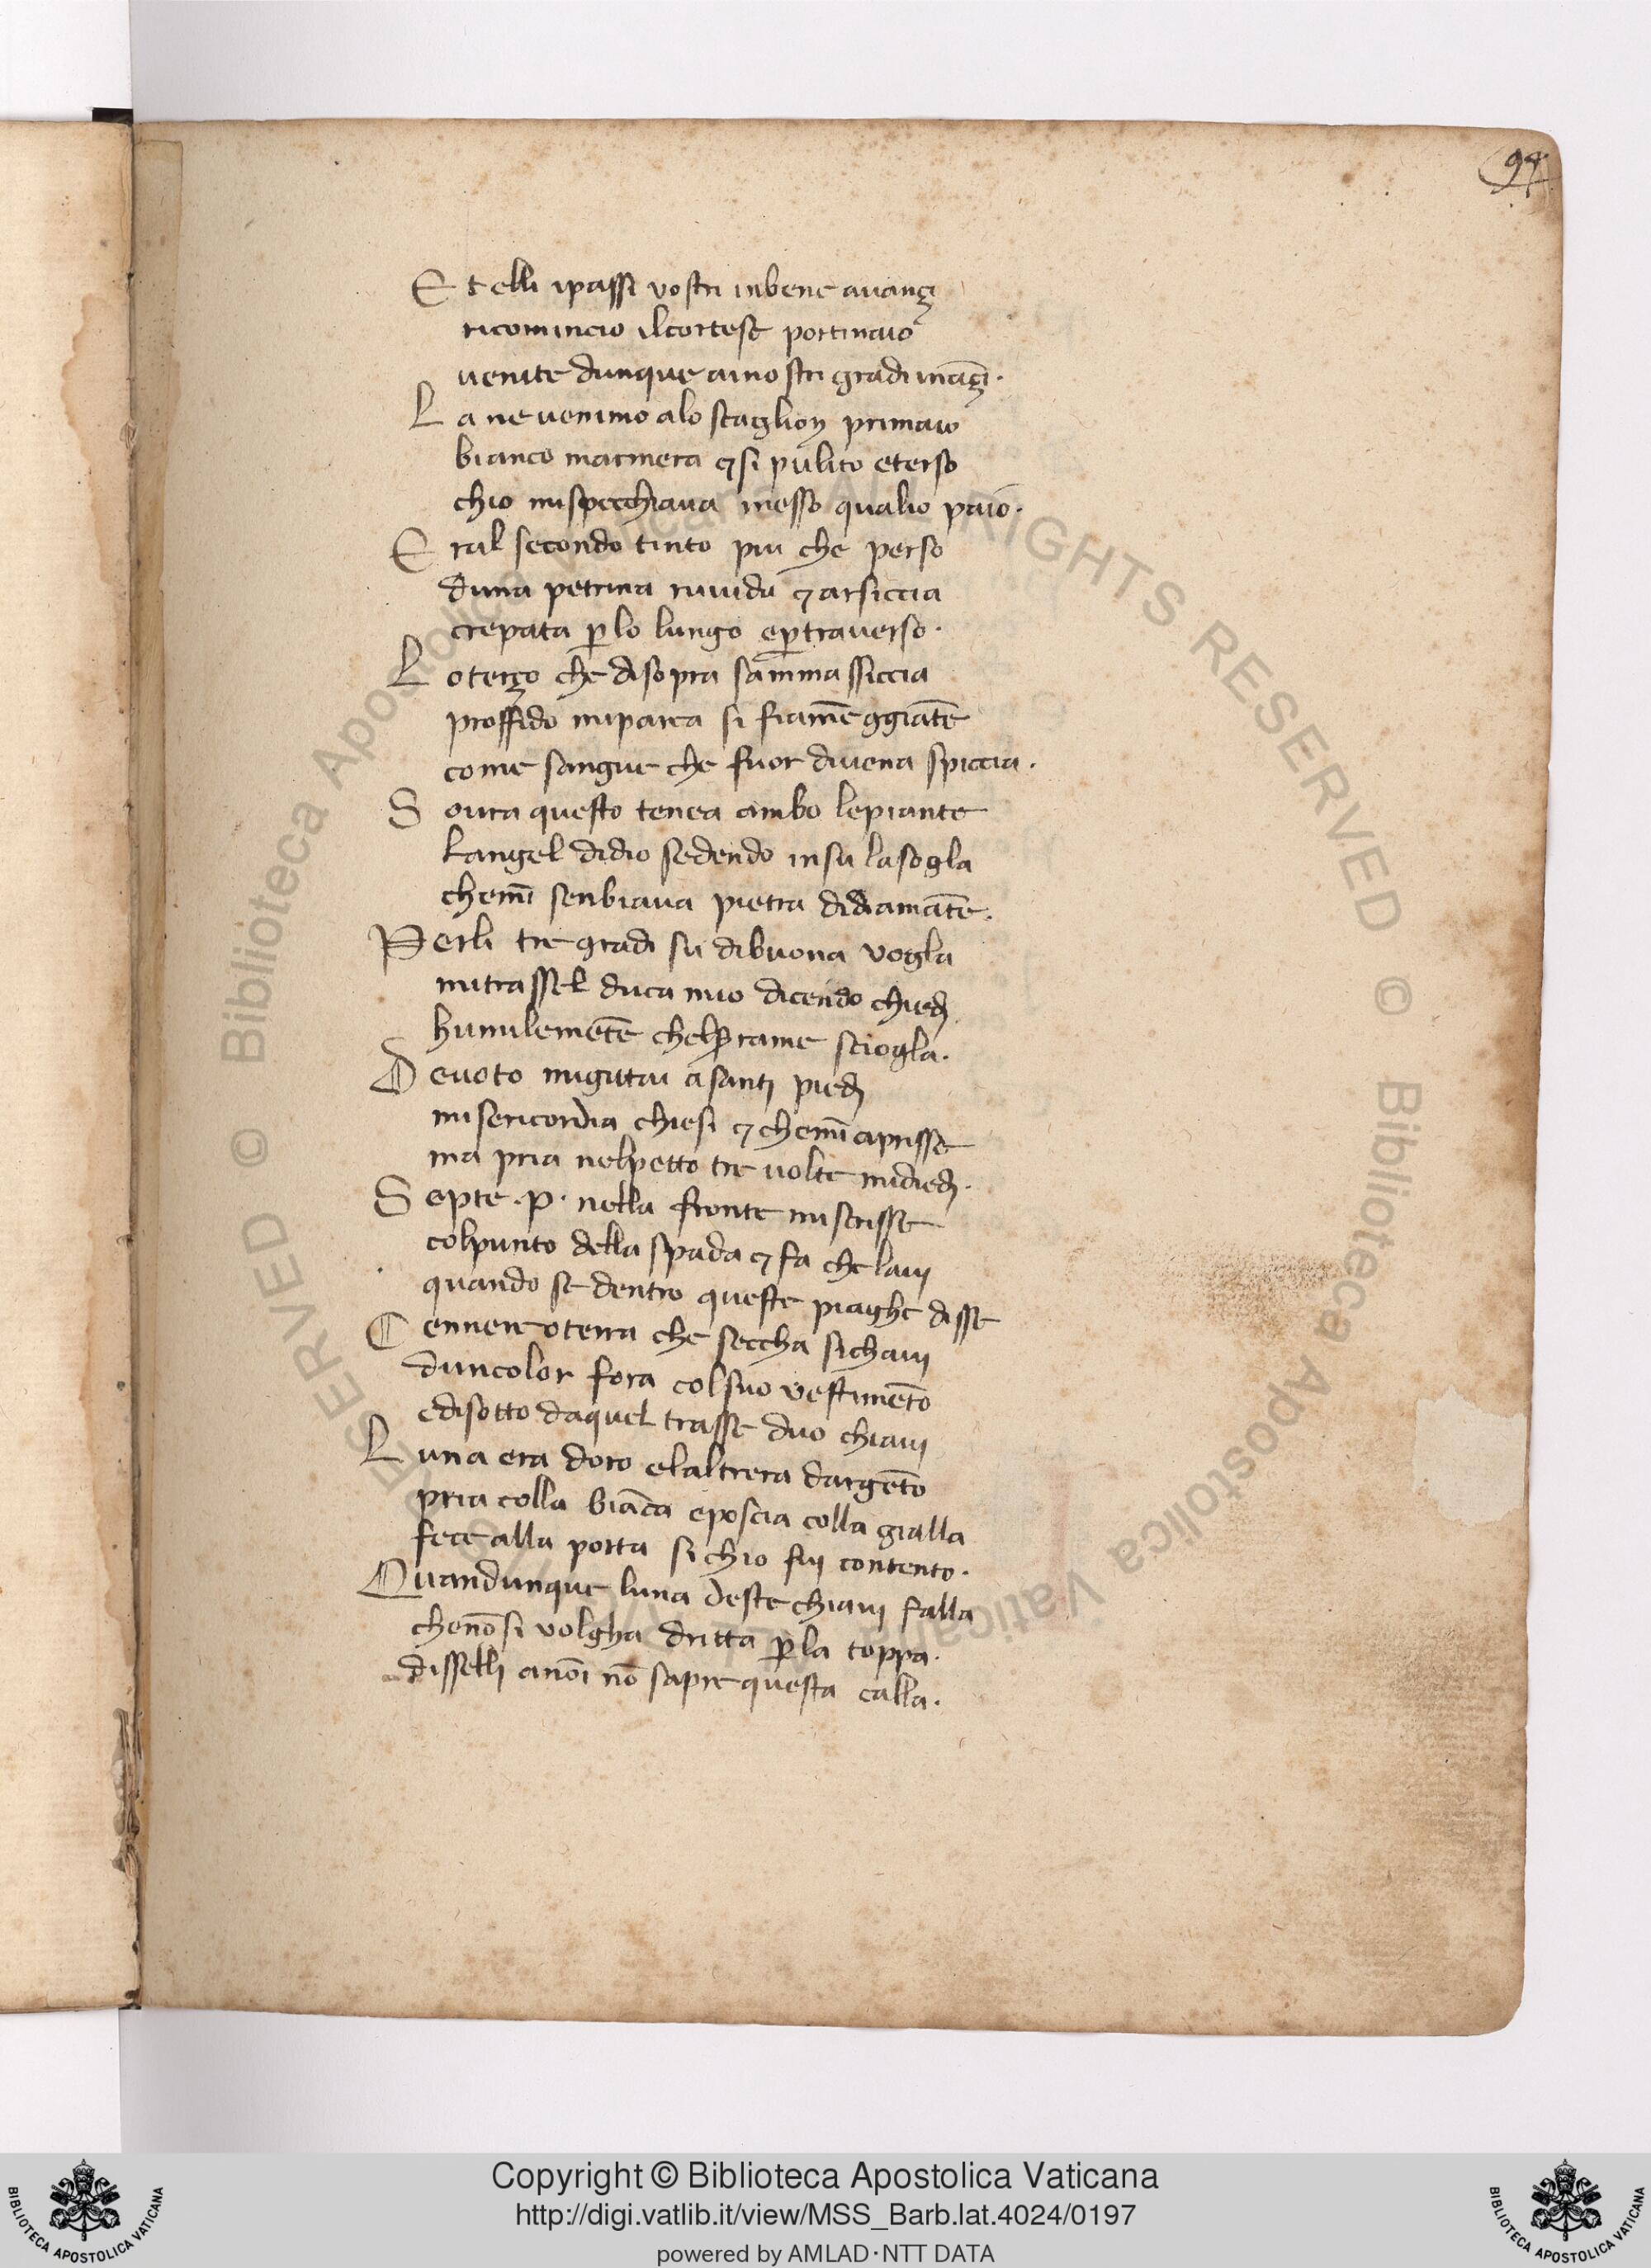 94
Et elli ipassi vostri inbene auanç
ricomincio ilcortese portinaio
uenite dunque ainostri gradi inãçi.
La ne uenimo alo scaglion primaio
bianco marmera ⁊ si pulito eterso
chio mispecchiaua inesso qualio paio.
Eral secondo tinto piu che perso
duna petrina ruuida ⁊ arsiccia
crepata ꝑ lo lungo eꝑ trauerso.
Lo terço che disopra sammassiccia
proffido miparea si fiamẽggiãte
come sangue che fuor diuena spiccia.
Soura questo tenea ambo lepiante
Langel didio sedendo insu lasogla
chemĩ senbiaua pietra didiamãte.
Perli tre gradi su dibuona vogla
mitrassel duca mio dicendo chiedi
humilemẽte chelserrame sciogla.
Deuoto migittai asanti piedi
misericordia chiesi ⁊ chemĩ aprisse
ma pria nelpetto tre uolte midiedi.
Septe .p. nella fronte miscrisse
colpunto della spada ⁊ fa che laui
quando se dentro queste piaghe disse
Cennere oterra che seccha sichaui
duncolor fora colsuo vestimẽto
edisotto daquel trasse duo chiaui
Luna era doro elaltrera dargẽto
pria colla biãca eposcia colla gialla
fece alla porta si chio fui contento.
Quandunque luna deste chiaui falla
chenõsi volgha dritta ꝑ la toppa.
disselli anoi nõ sapre questa calla.
© Biblioteca Apostolica Vaticana ALL RIGHTS RESERVED © Biblioteca Apostolica Vaticana ALL RIGHTS RESERVED
Copyright © Biblioteca Apostolica Vaticana
http://digi.vatlib.it/view/MSS_Barb.lat.4024/0197
powered by AMLAD·NTT DATA
BIBLIOTECA APOSTOLICA VATICANA
BIBLIOTECA APOSTOLICA VATICANA